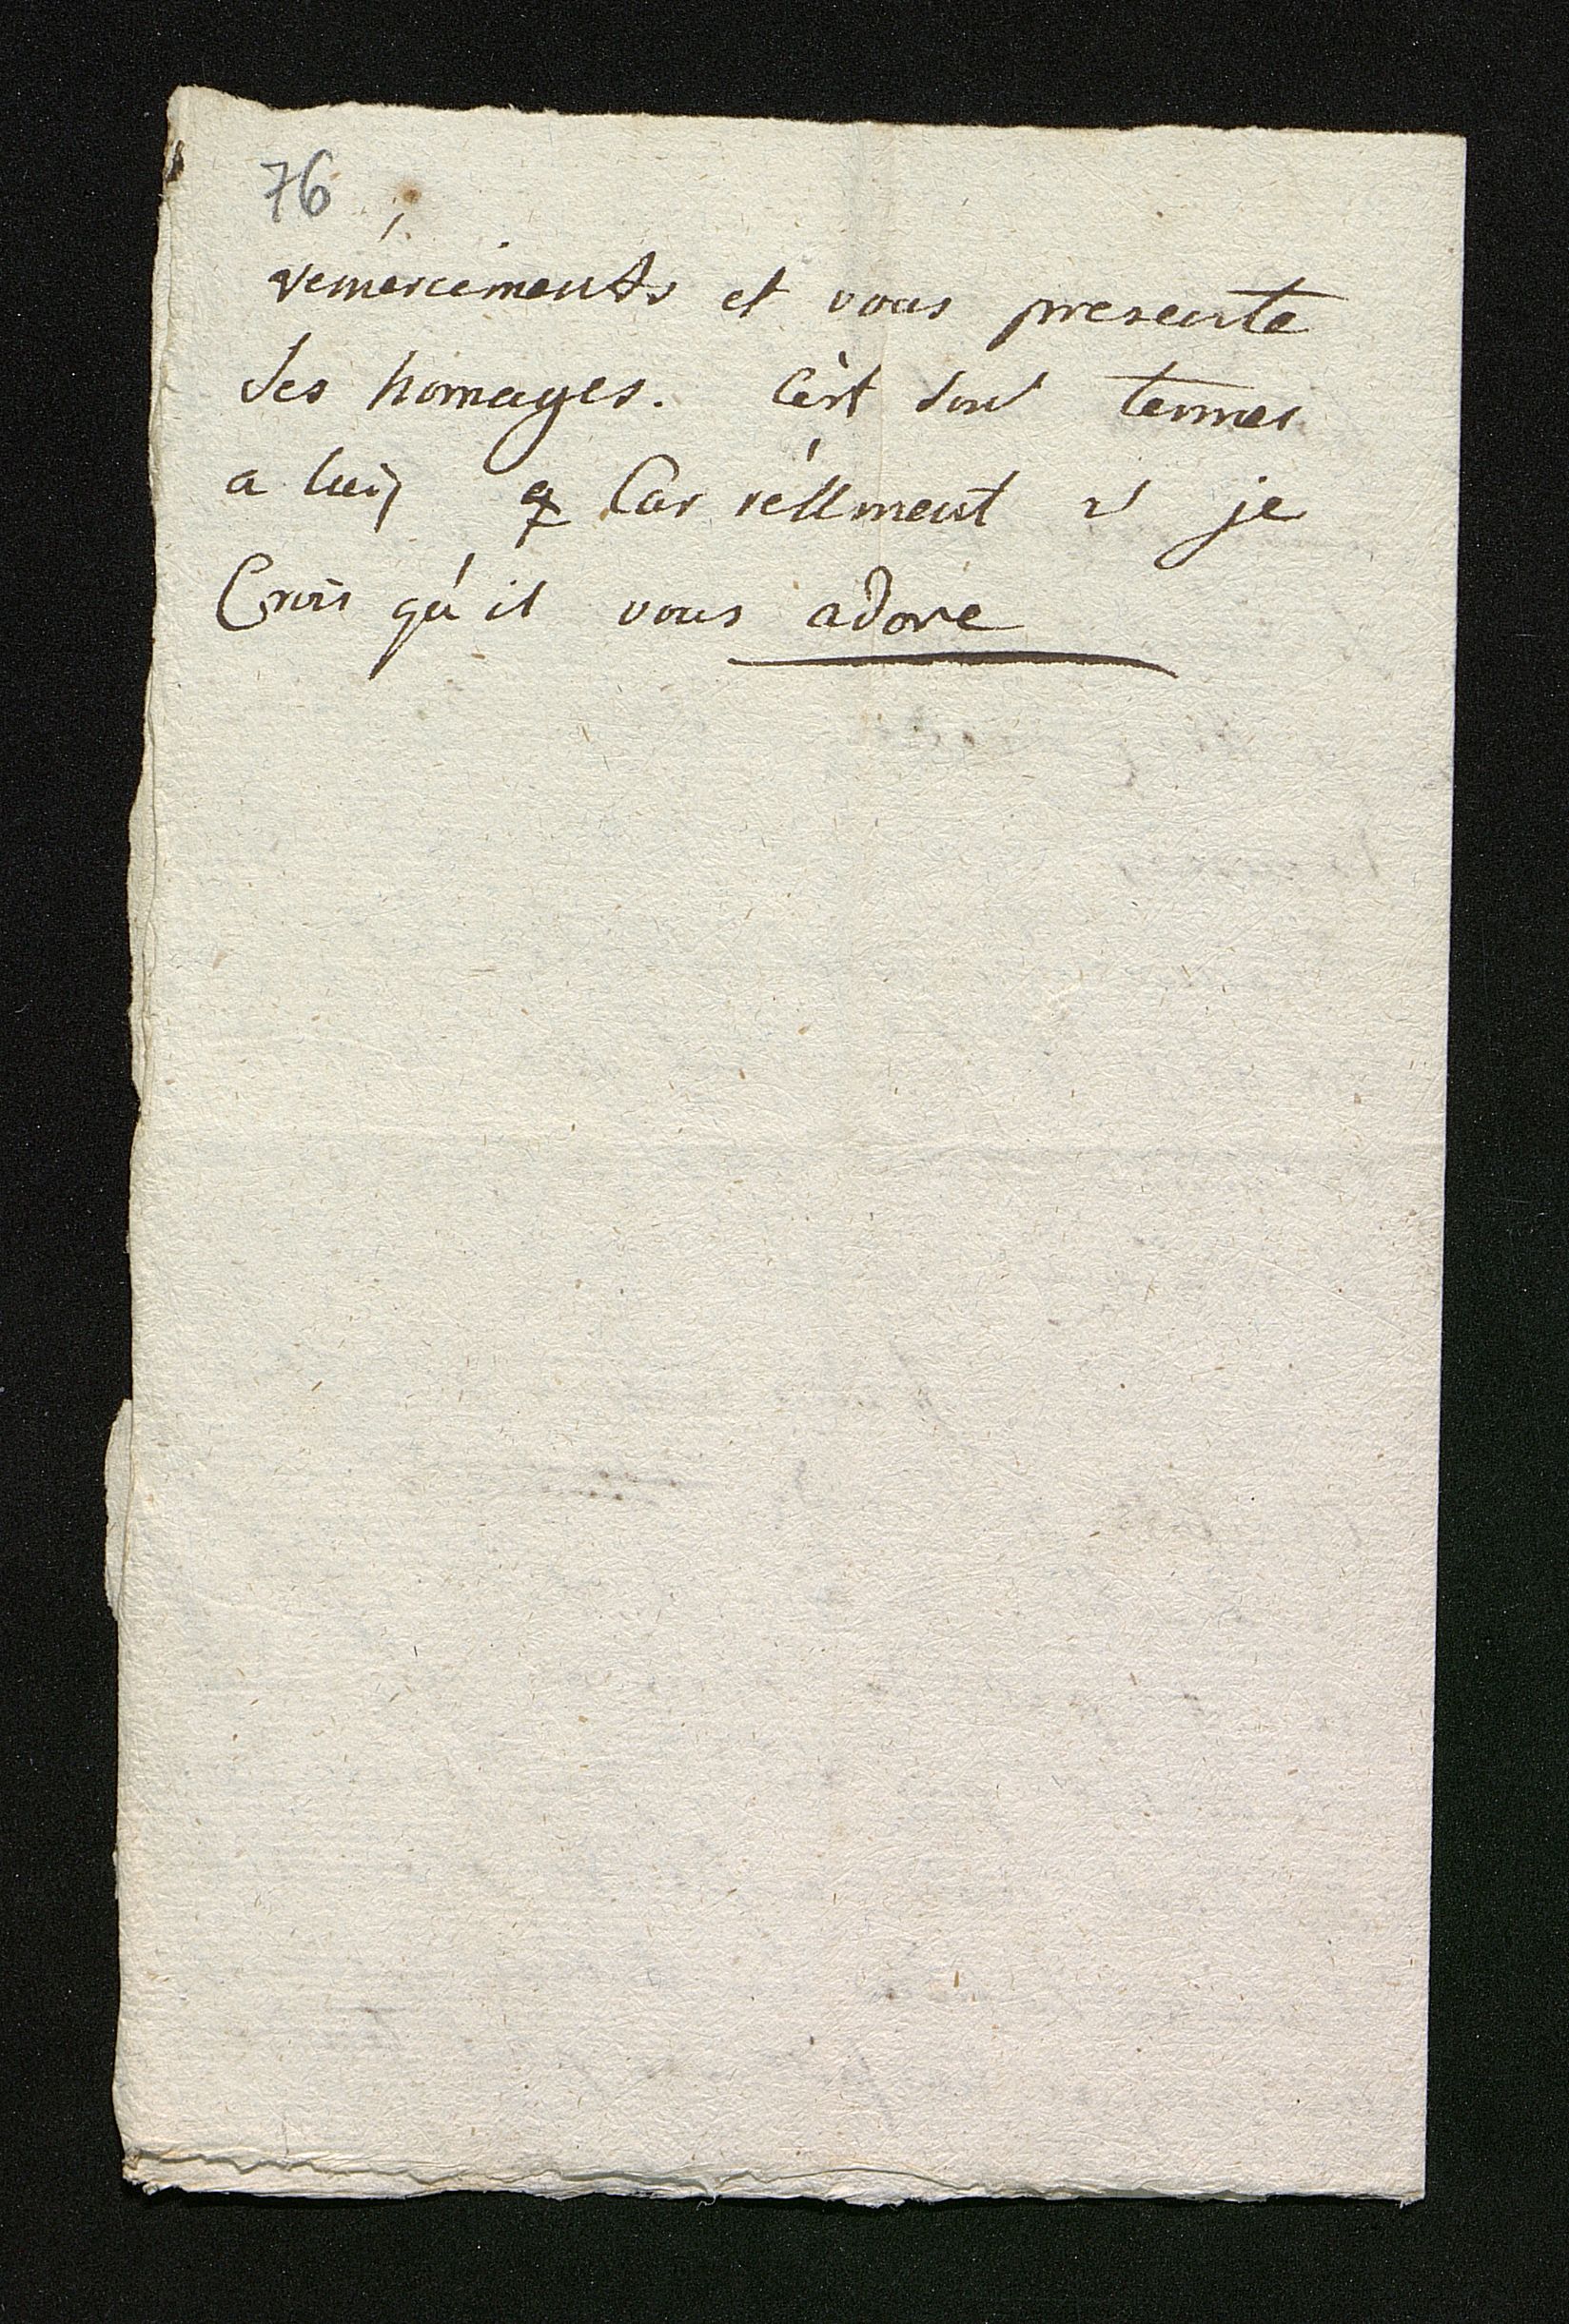 76
remérciments et vous presente
ses homages. C'èst son termes
a luiy car réllment je
Crois qu'il vous adore